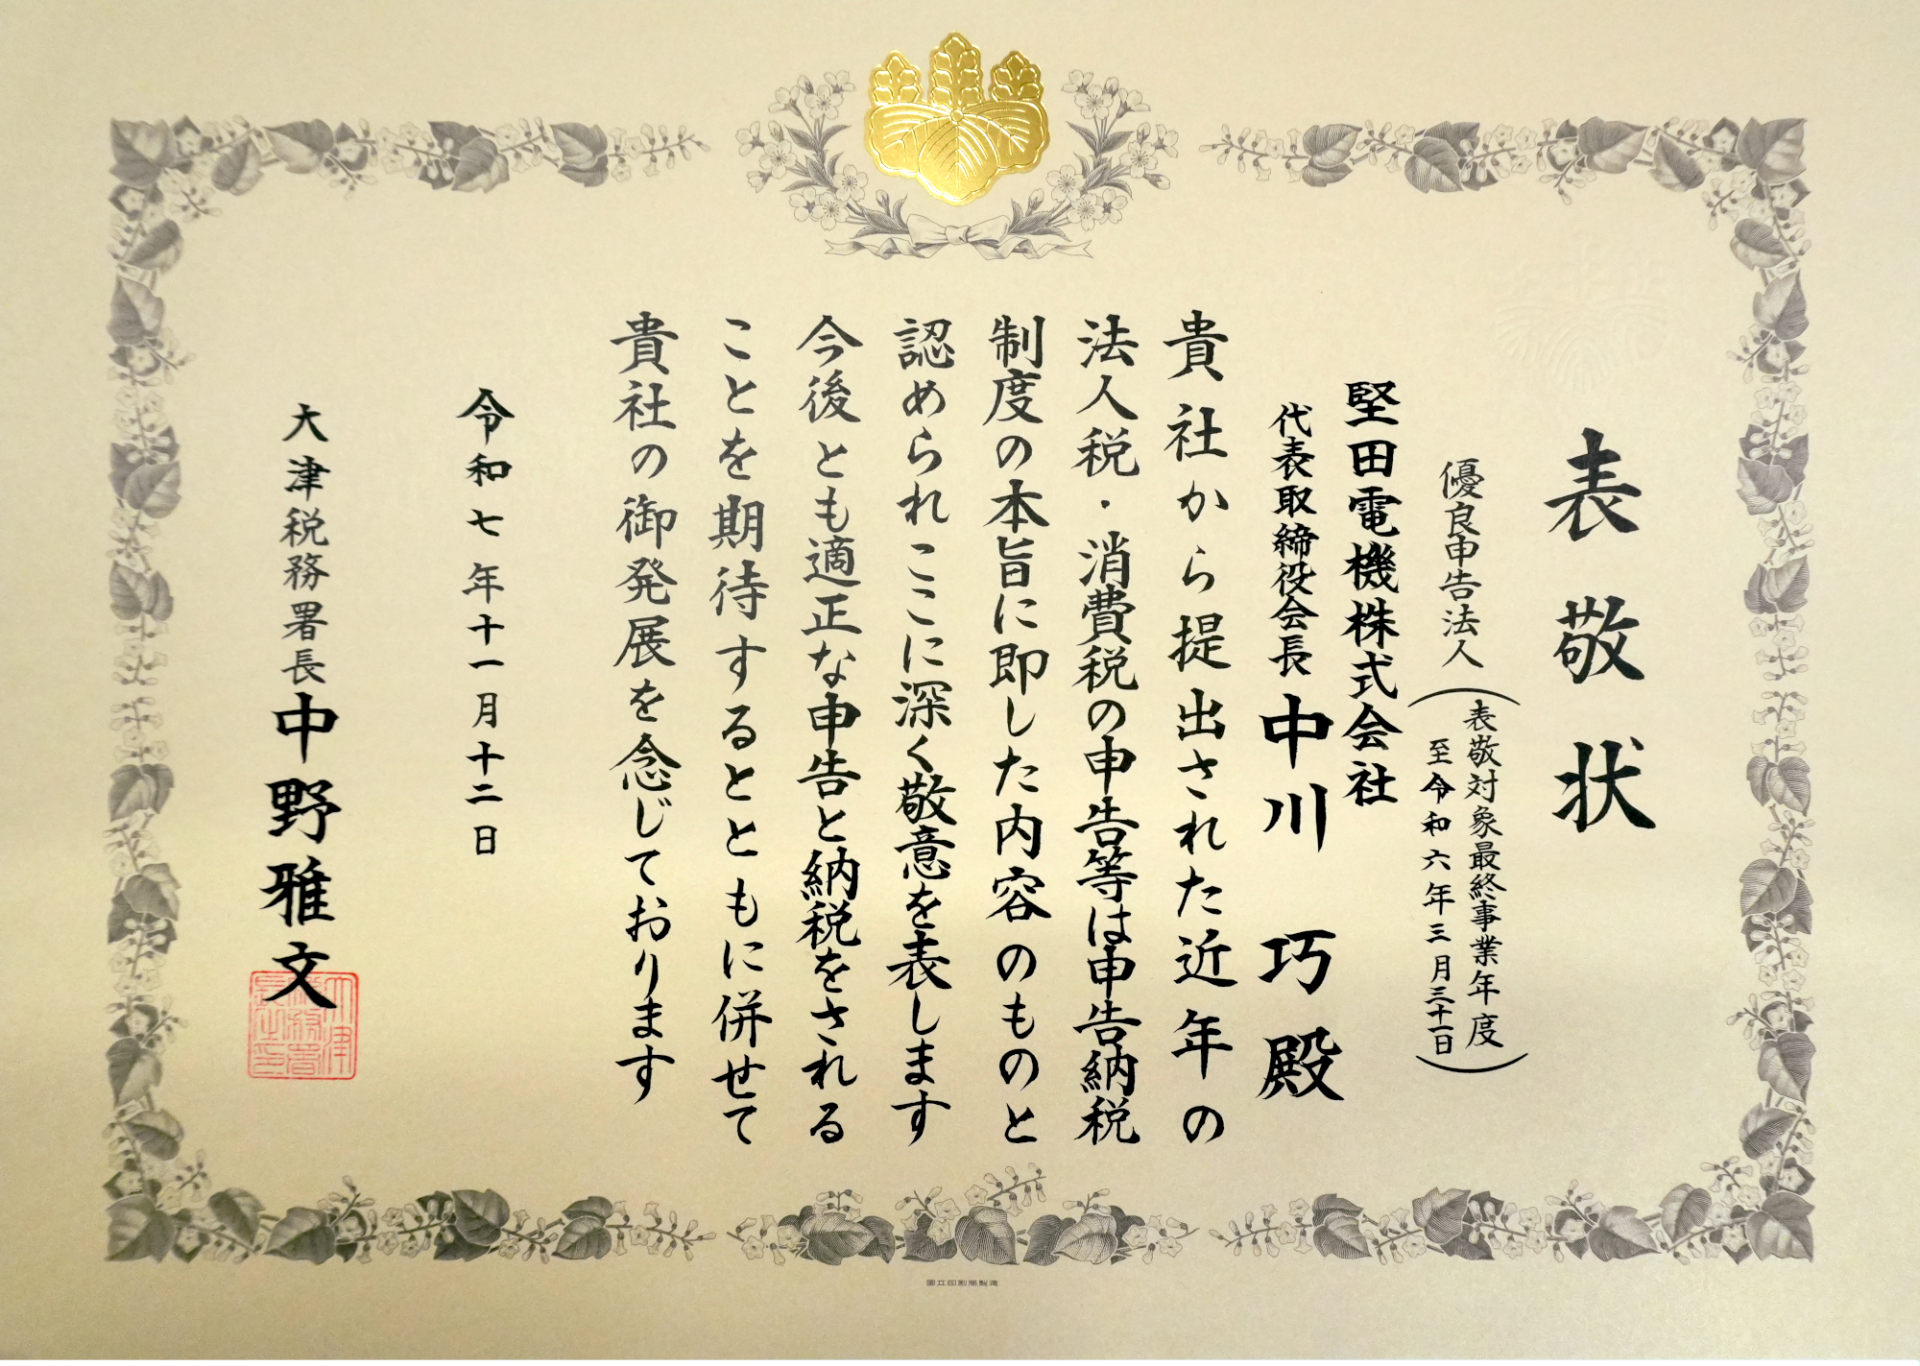 表敬状
優良申告法人
（表敬対象最終事業年度
至令和六年三月三十一日）
堅田電機株式会社
代表取締役会長 中川 巧 殿
貴社から提出された近年の
法人税・消費税の申告等は申告納税
制度の本旨に即した内容のものと
認められここに深く敬意を表します
今後とも適正な申告と納税をされる
ことを期待するとともに併せて
貴社の御発展を念じております
令和七年十一月十二日
大津税務署長 中野雅文
大津
税務署
長之印
国立印刷局製造